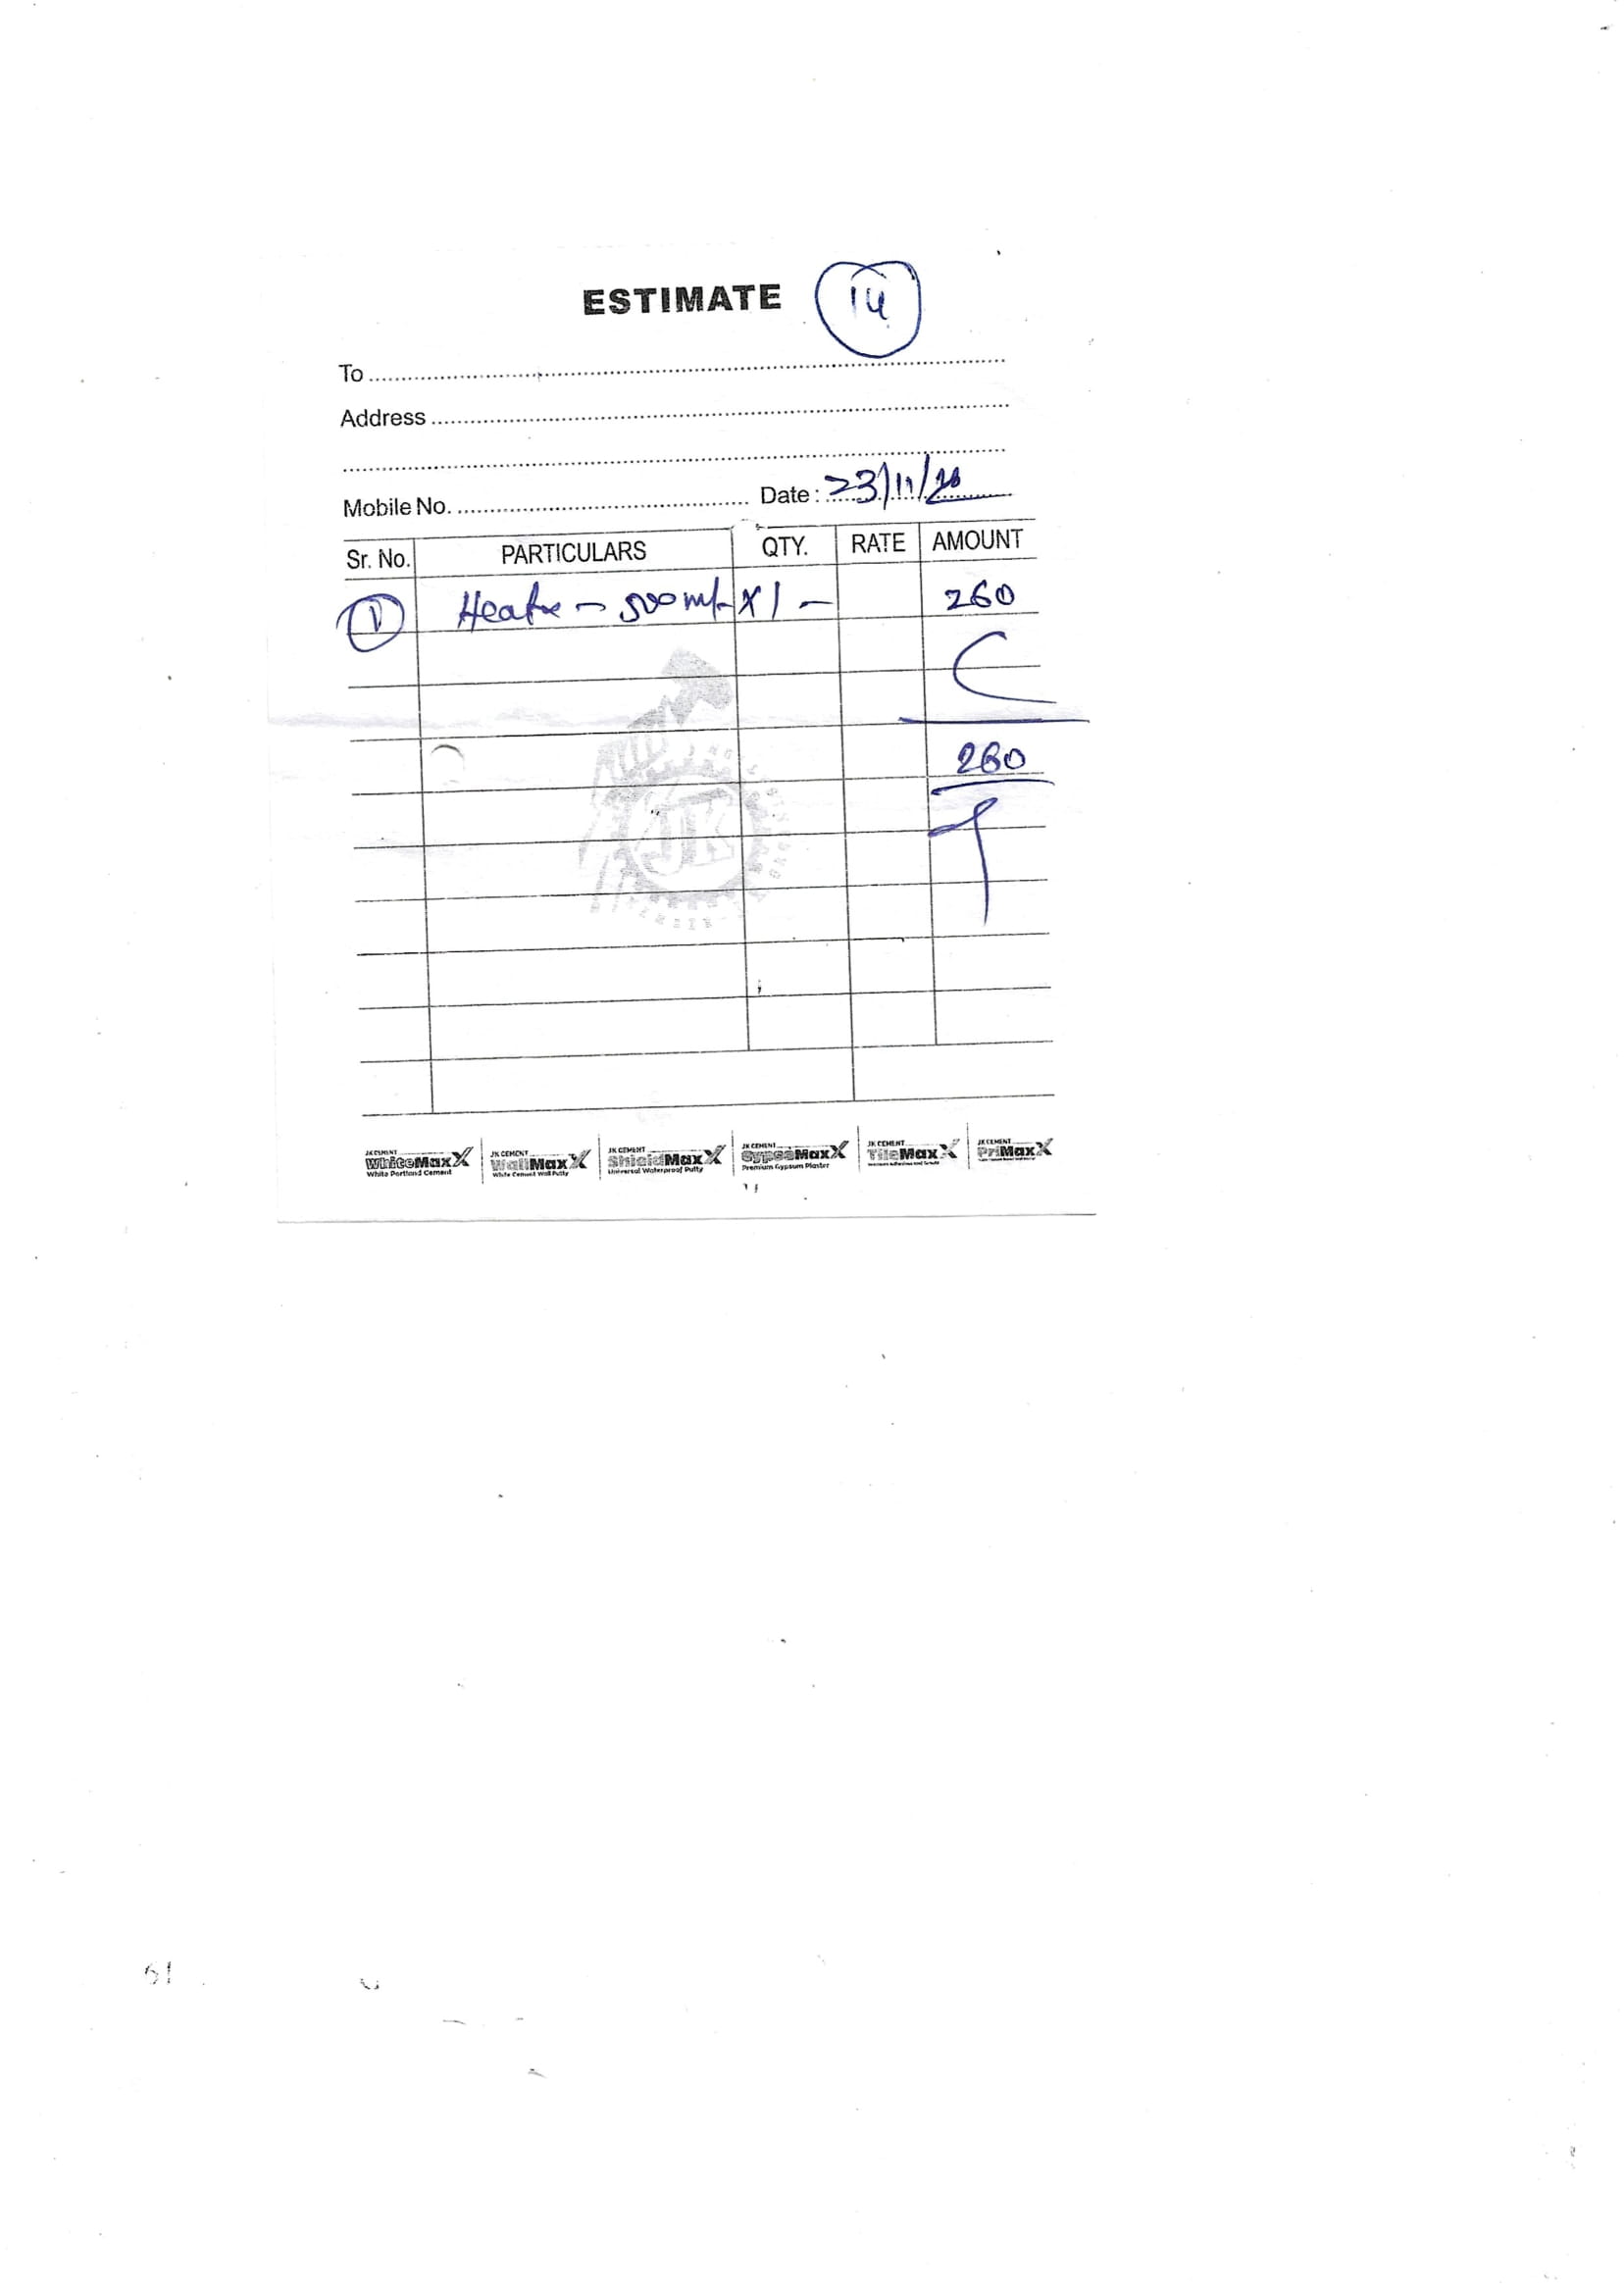 ESTIMATE 14
To
Address
Mobile No. Date: 23/11/20
Sr. No. PARTICULARS QTY. RATE AMOUNT
1 - 500 ml X 1 - 260
260
JK
JK CEMENT WhiteMaxX White Portland Cement
JK CEMENT WallMaxX White Cement Wall Putty
JK CEMENT ShieldMaxX Universal Waterproof Putty
JK CEMENT GypsoMaxX Premium Gypsum Plaster
JK CEMENT TileMaxX
JK CEMENT PriMaxX